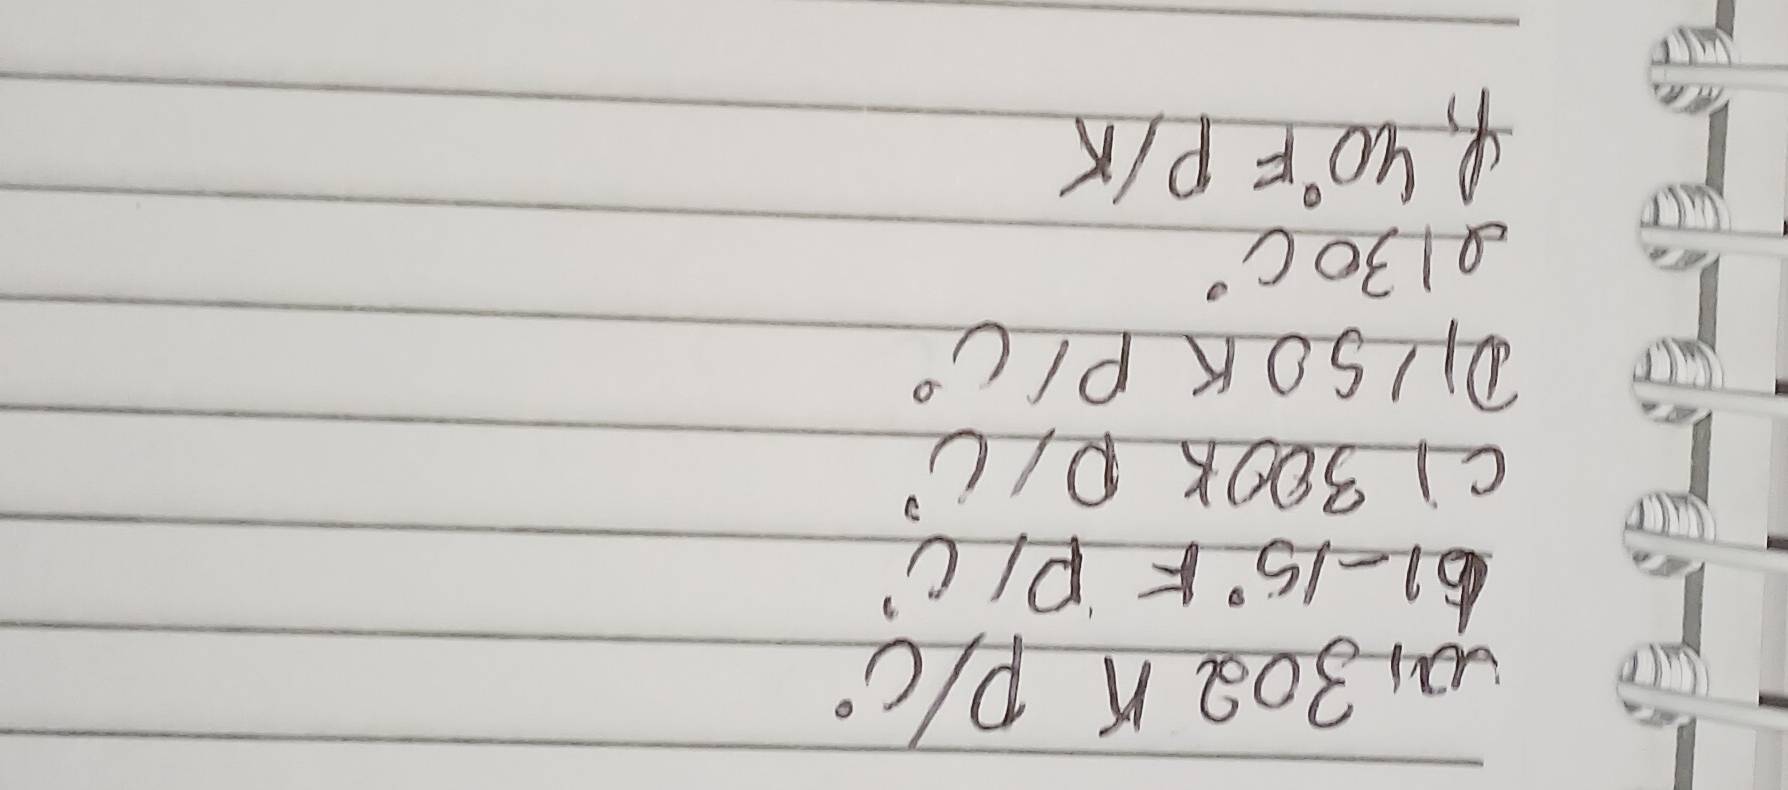 a) 302 K P/C°
b) -15°F P/C°
c) 300K P/C°
D) 150K P/C°
e) 30C°
f) 40°F P/K